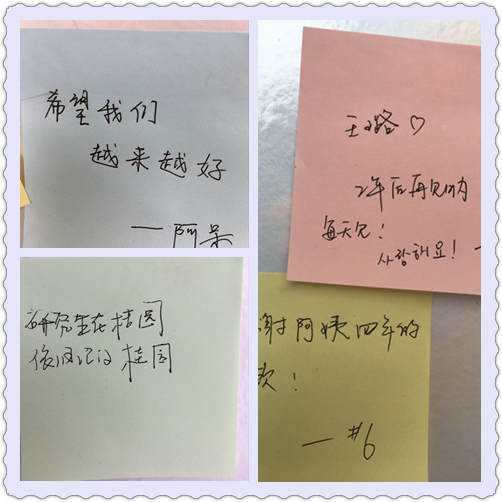 希望我们
越来越好
—阿呆
王路♡
2年后再见的
每天见!
사랑해요!
研究生在桂园
桂园
谢阿姨四年的
款!
—#6